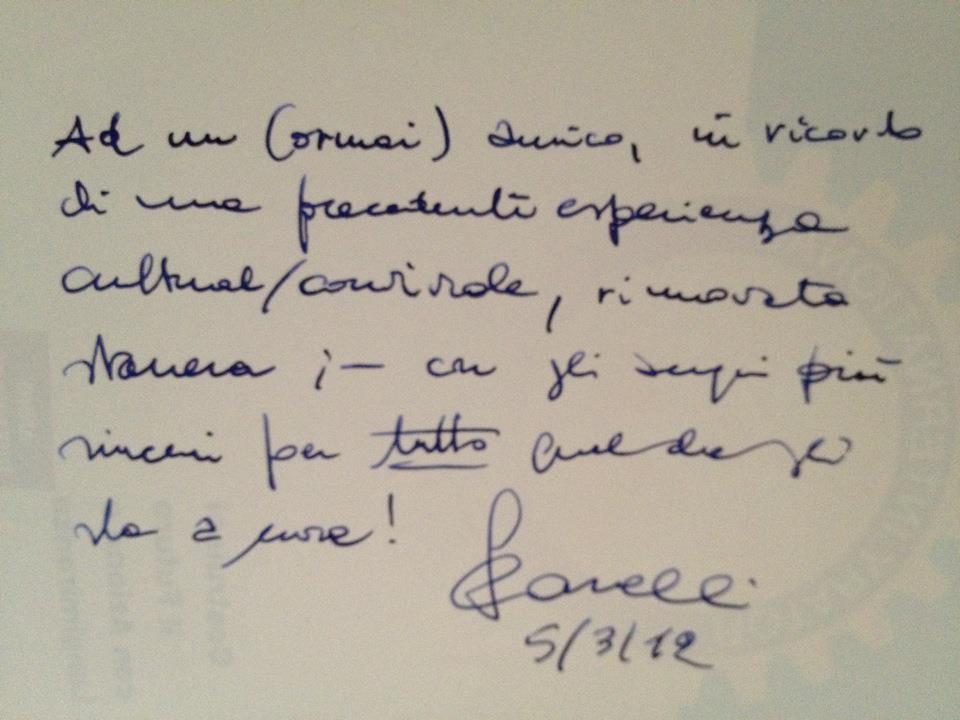 Ad un (ormai) amico, in ricordo
di una precedente esperienza
cultural/conviviale, rinnovata
stasera ;— con gli auguri più
sinceri per tutto quel che gli
sta a cuore!
5/3/12